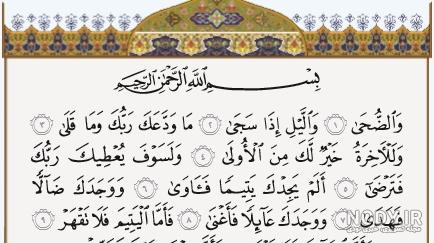 بِسْمِ اللَّهِ الرَّحْمَٰنِ الرَّحِيمِ
وَالضُّحَىٰ ١ وَاللَّيْلِ إِذَا سَجَىٰ ٢ مَا وَدَّعَكَ رَبُّكَ وَمَا قَلَىٰ ٣
وَلَلْآخِرَةُ خَيْرٌ لَكَ مِنَ الْأُولَىٰ ٤ وَلَسَوْفَ يُعْطِيكَ رَبُّكَ
فَتَرْضَىٰ ٥ أَلَمْ يَجِدْكَ يَتِيمًا فَآوَىٰ ٦ وَوَجَدَكَ ضَالًّا
فَهَدَىٰ ٧ وَوَجَدَكَ عَائِلًا فَأَغْنَىٰ ٨ فَأَمَّا الْيَتِيمَ فَلَا تَقْهَرْ ٩